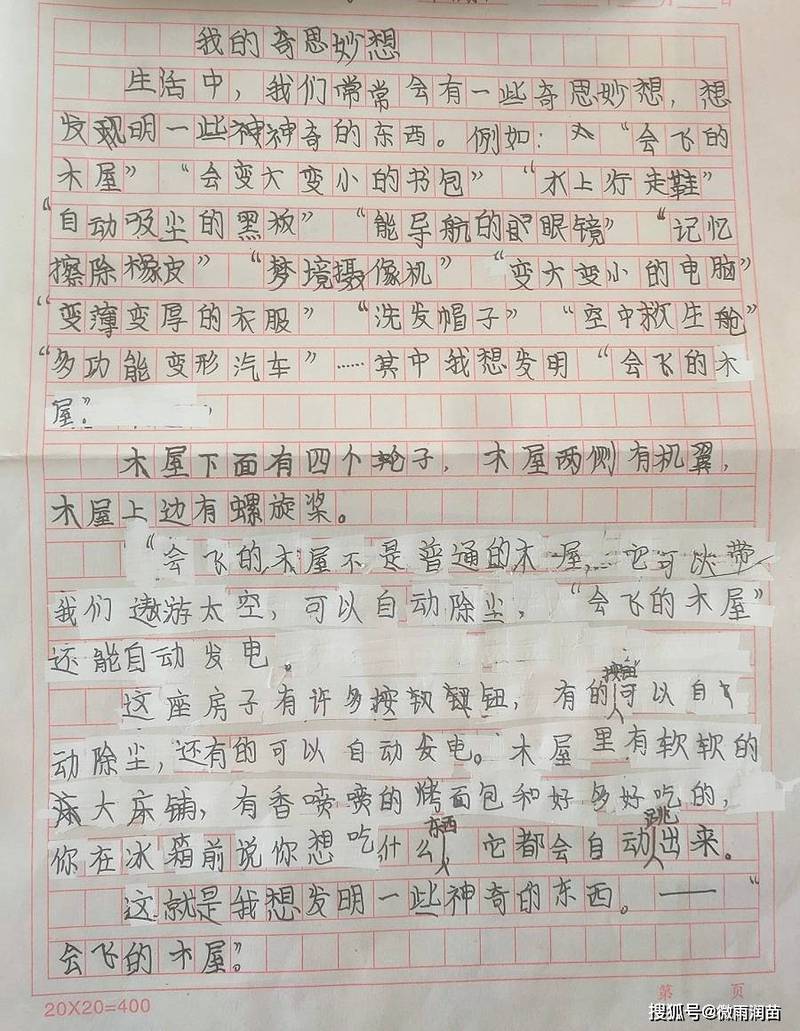 我的奇思妙想
生活中，我们常常会有一些奇思妙想，想
发现明一些神神奇的东西。例如：“会飞的
木屋”“会变大变小的书包”“水上行走鞋”
“自动吸尘的黑板”“能导航的眼镜”“记忆
擦除橡皮”“梦境摄像机”“变大变小的电脑”
“变薄变厚的衣服”“洗发帽子”“空中救生舱”
“多功能变形汽车”……其中我想发明“会飞的木
屋”。
木屋下面有四个轮子，木屋两侧有机翼，
木屋上边有螺旋桨。
“会飞的木屋不是普通的木屋，它可以带
我们遨游太空，可以自动除尘，“会飞的木屋”
还能自动发电。
按钮
这座房子有许多按钮，有的可以自
动除尘，还有的可以自动发电。木屋里有软软的
大床铺，有香喷喷的烤面包和好多好吃的，
东西 跳
你在冰箱前说你想吃什么它都会自动出来。
这就是我想发明一些神奇的东西。——“
会飞的木屋”。
20X20=400
第 页
搜狐号@微雨润苗